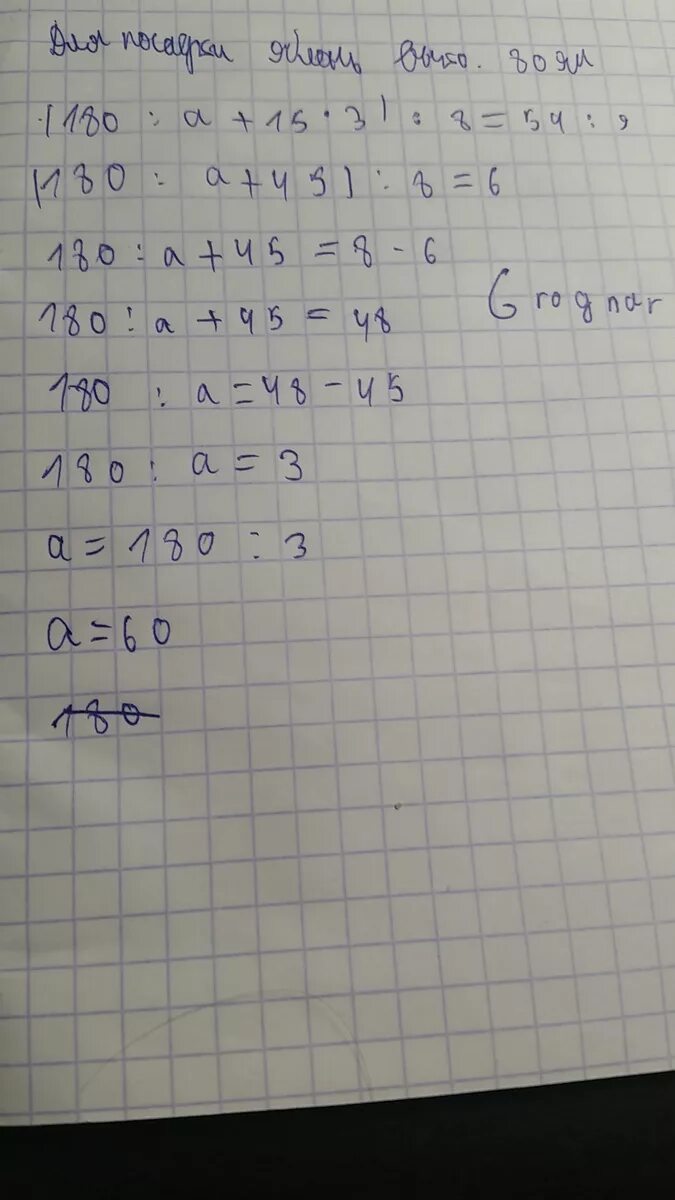 Для посадки яблонь выко. 80 ям
(180 : a + 15 · 3) : 8 = 54 : 9
(180 : a + 45) : 8 = 6
180 : a + 45 = 8 - 6
180 : a + 45 = 48
Grognar
180 : a = 48 - 45
180 : a = 3
a = 180 : 3
a = 60
180